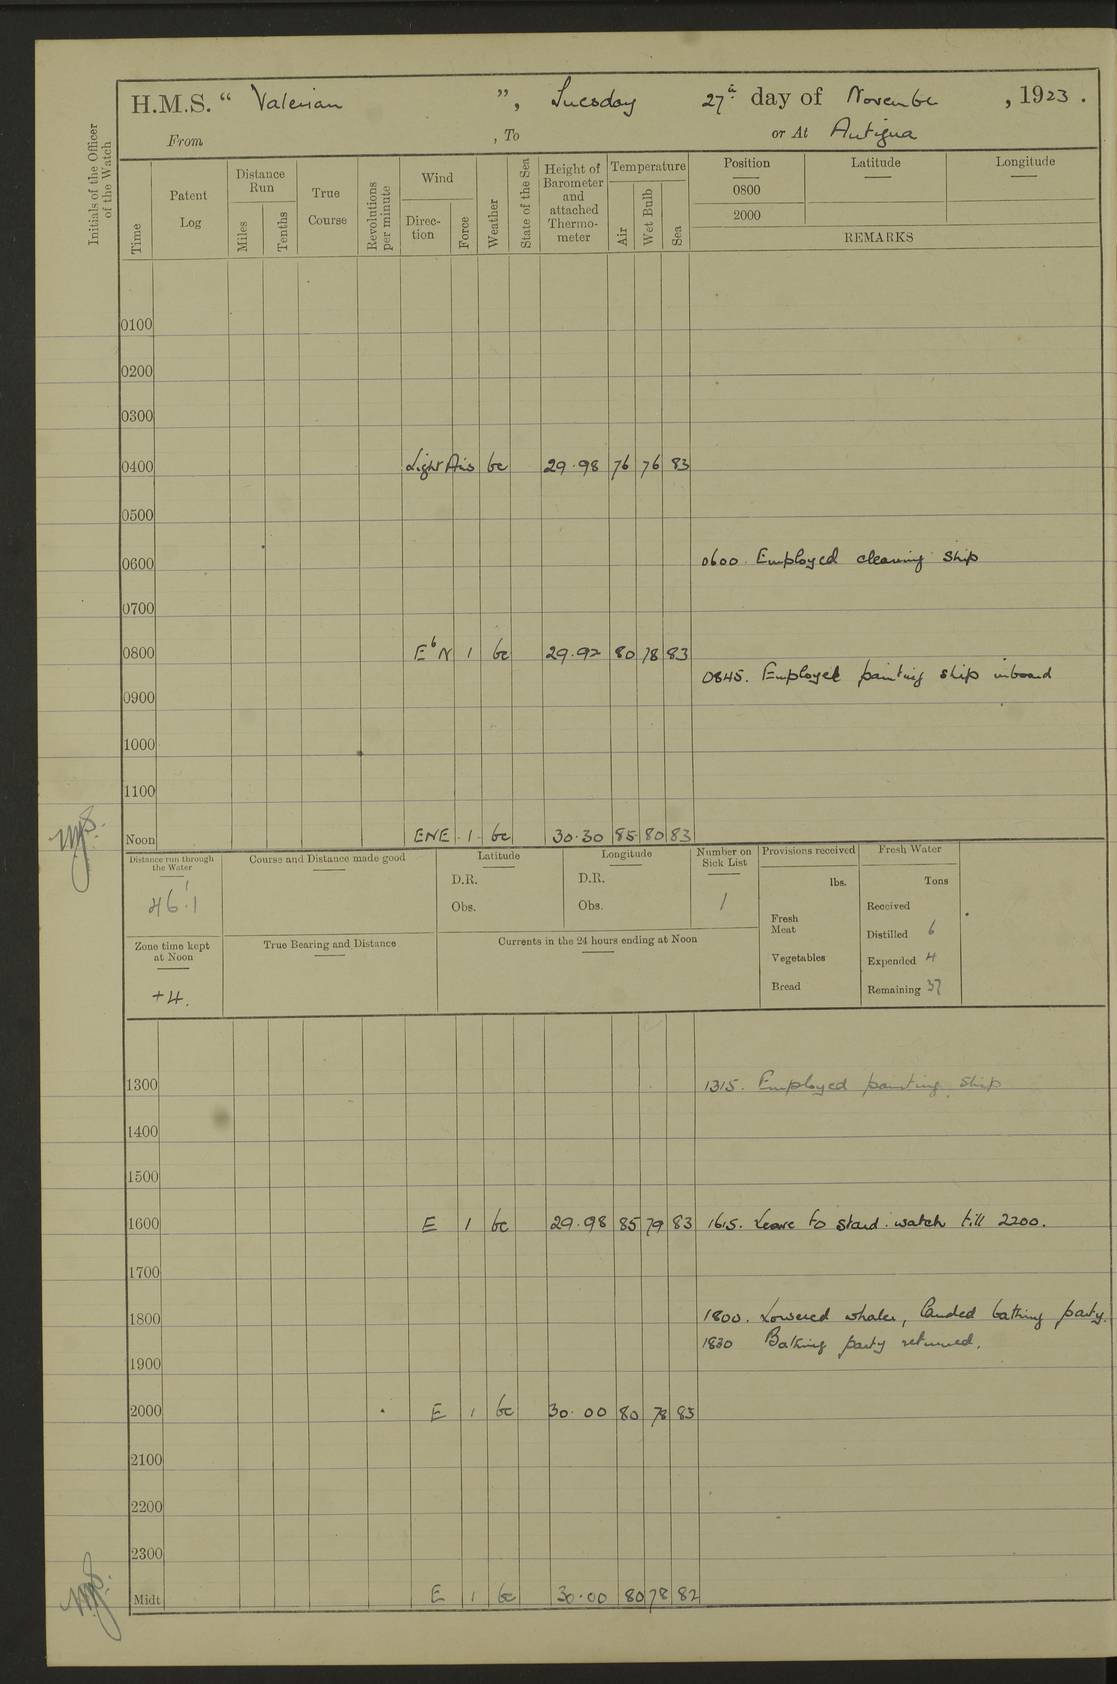 H.M.S. “ Valerian ”, Tuesday 27th day of November, 1923.
From , To or At Antigua
Initials of the Officer of the Watch
Time
Patent Log
Distance Run
Miles
Tenths
True Course
Revolutions per minute
Wind
Direc-tion
Force
Weather
State of the Sea
Height of Barometer and attached Thermo-meter
Temperature
Air
Wet Bulb
Sea
Position
Latitude
Longitude
0800
2000
REMARKS
0100
0200
0300
0400 Light Airs bc 29.98 76 76 83
0500
0600 0600. Employed cleaning ship
0700
0800 E b N 1 bc 29.92 80 78 83
0845. Employed painting ship inboard
0900
1000
1100
Noon ENE 1 bc 30.30 85 80 83
Distance run through the Water
46.1
Course and Distance made good
Latitude
D.R.
Obs.
Longitude
D.R.
Obs.
Number on Sick List
1
Provisions received
lbs.
Fresh Meat
Vegetables
Bread
Fresh Water
Tons
Received
Distilled 6
Expended 4
Remaining 37
Zone time kept at Noon
+4.
True Bearing and Distance
Currents in the 24 hours ending at Noon
1300 1315. Employed painting ship
1400
1500
1600 E 1 bc 29.98 85 79 83 1615. Leave to stard. watch till 2200.
1700
1800 1800. Lowered whaler, landed bathing party.
1830 Bathing party returned.
1900
2000 E 1 bc 30.00 80 78 83
2100
2200
2300
Midt E 1 bc 30.00 80 78 82